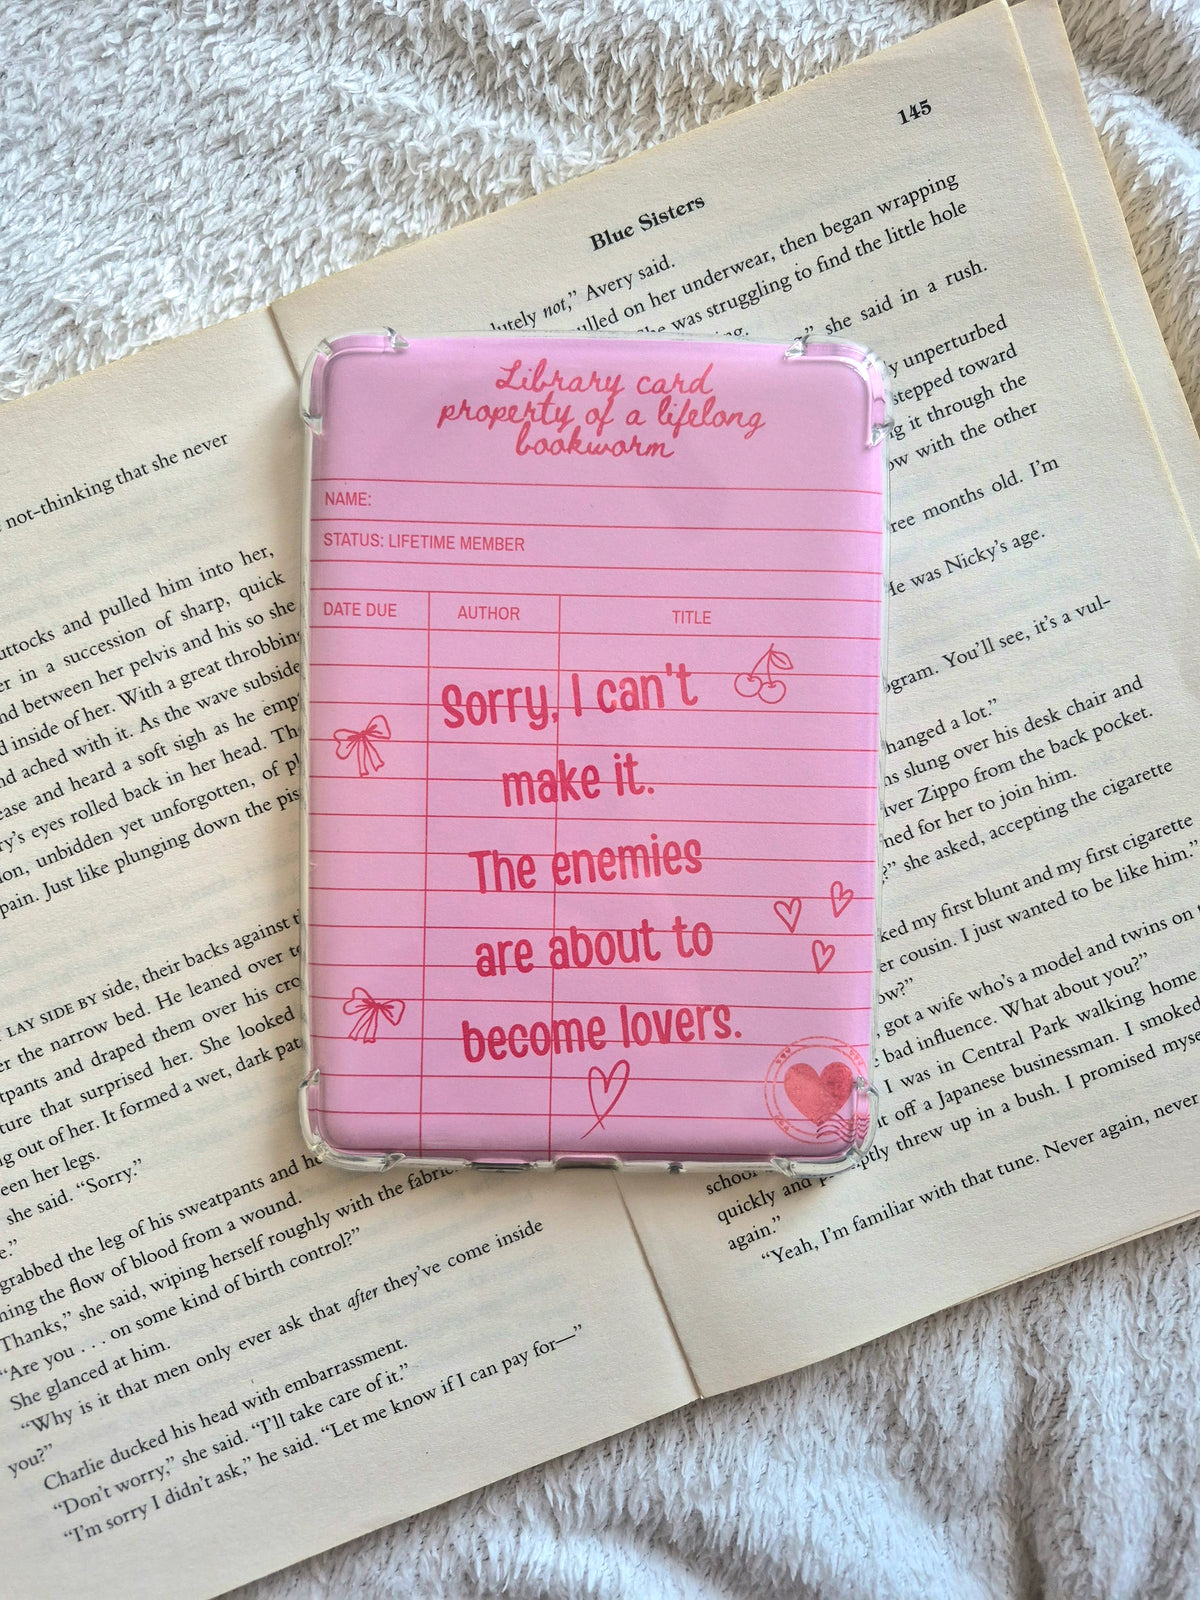 145
Blue Sisters
lutely not,” Avery said.
ulled on her underwear, then began wrapping
She was struggling to find the little hole
ing.
” she said in a rush.
y unperturbed
stepped toward
ng it through the
ow with the other
ree months old. I’m
He was Nicky’s age.
ogram. You’ll see, it’s a vul-
hanged a lot.”
ns slung over his desk chair and
lver Zippo from the back pocket.
ned for her to join him.
?” she asked, accepting the cigarette
ked my first blunt and my first cigarette
er cousin. I just wanted to be like him.”
ow?”
got a wife who’s a model and twins on
bad influence. What about you?”
I was in Central Park walking home
it off a Japanese businessman. I smoked
school
ptly threw up in a bush. I promised myse
quickly and
again.”
“Yeah, I’m familiar with that tune. Never again, never
Library card
property of a lifelong
bookworm
NAME:
STATUS: LIFETIME MEMBER
DATE DUE AUTHOR TITLE
Sorry, I can't
make it.
The enemies
are about to
become lovers.
not-thinking that she never
uttocks and pulled him into her,
er in a succession of sharp, quick
nd between her pelvis and his so she
d inside of her. With a great throbbing
nd ached with it. As the wave subside
ease and heard a soft sigh as he emp
ry’s eyes rolled back in her head. Th
ion, unbidden yet unforgotten, of pl
pain. Just like plunging down the pis
LAY SIDE BY side, their backs against t
er the narrow bed. He leaned over to
tpants and draped them over his cro
ture that surprised her. She looked
ng out of her. It formed a wet, dark pat
een her legs.
she said. “Sorry.”
e.”
grabbed the leg of his sweatpants and he
ning the flow of blood from a wound.
Thanks,” she said, wiping herself roughly with the fabric
“Are you . . . on some kind of birth control?”
She glanced at him.
“Why is it that men only ever ask that after they’ve come inside
you?”
Charlie ducked his head with embarrassment.
“Don’t worry,” she said. “I’ll take care of it.”
“I’m sorry I didn’t ask,” he said. “Let me know if I can pay for—”